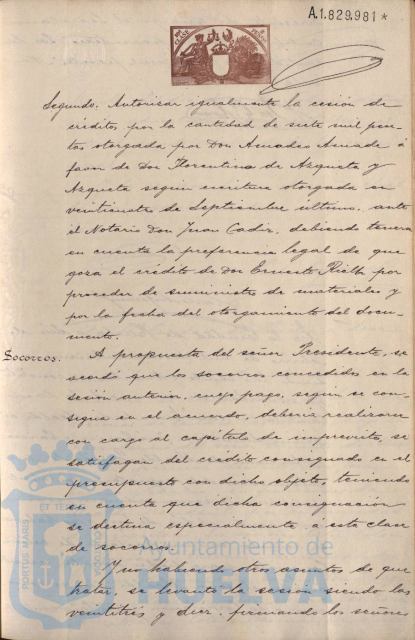 A.1.829.981 *
Segundo. Autorizar igualmente la cesión de
créditos, por la cantidad de siete mil pese-
tas otorgada por Don Amadeo Amade á
favor de Don Florentino de Azqueta y
Azqueta según escritura otorgada en
veinticuatro de Septiembre último, ante
el Notario Don Juan Cadiz, debiendo tenerse
en cuenta la preferencia legal de que
goza el crédito de Don Ernesto por
proceder de suministro de materiales y
por la fecha del otorgamiento del docu-
mento.
Socorros.
A propuesta del señor Presidente, se
acordó que los socorros concedidos en la
sesión anterior, cuyo pago, según se con-
signa en el acuerdo, debería realizarse
con cargo al capítulo de imprevistos, se
satisfagan del crédito consignado en el
presupuesto con dicho objeto, teniendo
en cuenta que dicha consignación
se destina especialmente á esta clase
de socorros.
Y no habiendo otros asuntos de que
tratar, se levantó la sesión siendo las
veintitrés y diez, firmando los señores
PORTUS MARIS
ET TERRAE
Ayuntamiento de
HUELVA